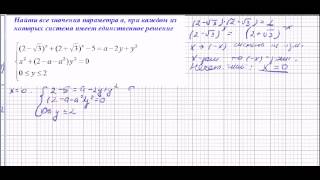 Найти все значения параметра a, при каждом из
которых система имеет единственное решение
(2-√3)ˣ+(2+√3)ˣ-5=a-2y+y²
x²+(2-a-a²)y²=0
0≤y≤2
(2-√3)·(2+√3)=1
(2-√3)ˣ=(2+√3)⁻ˣ
x→(-x) система не изм.
x реш → (-x) - реш.
x=0
x=0. 2-5=a-2y+y²
(2-a-a²)y²=0
0≤y≤2